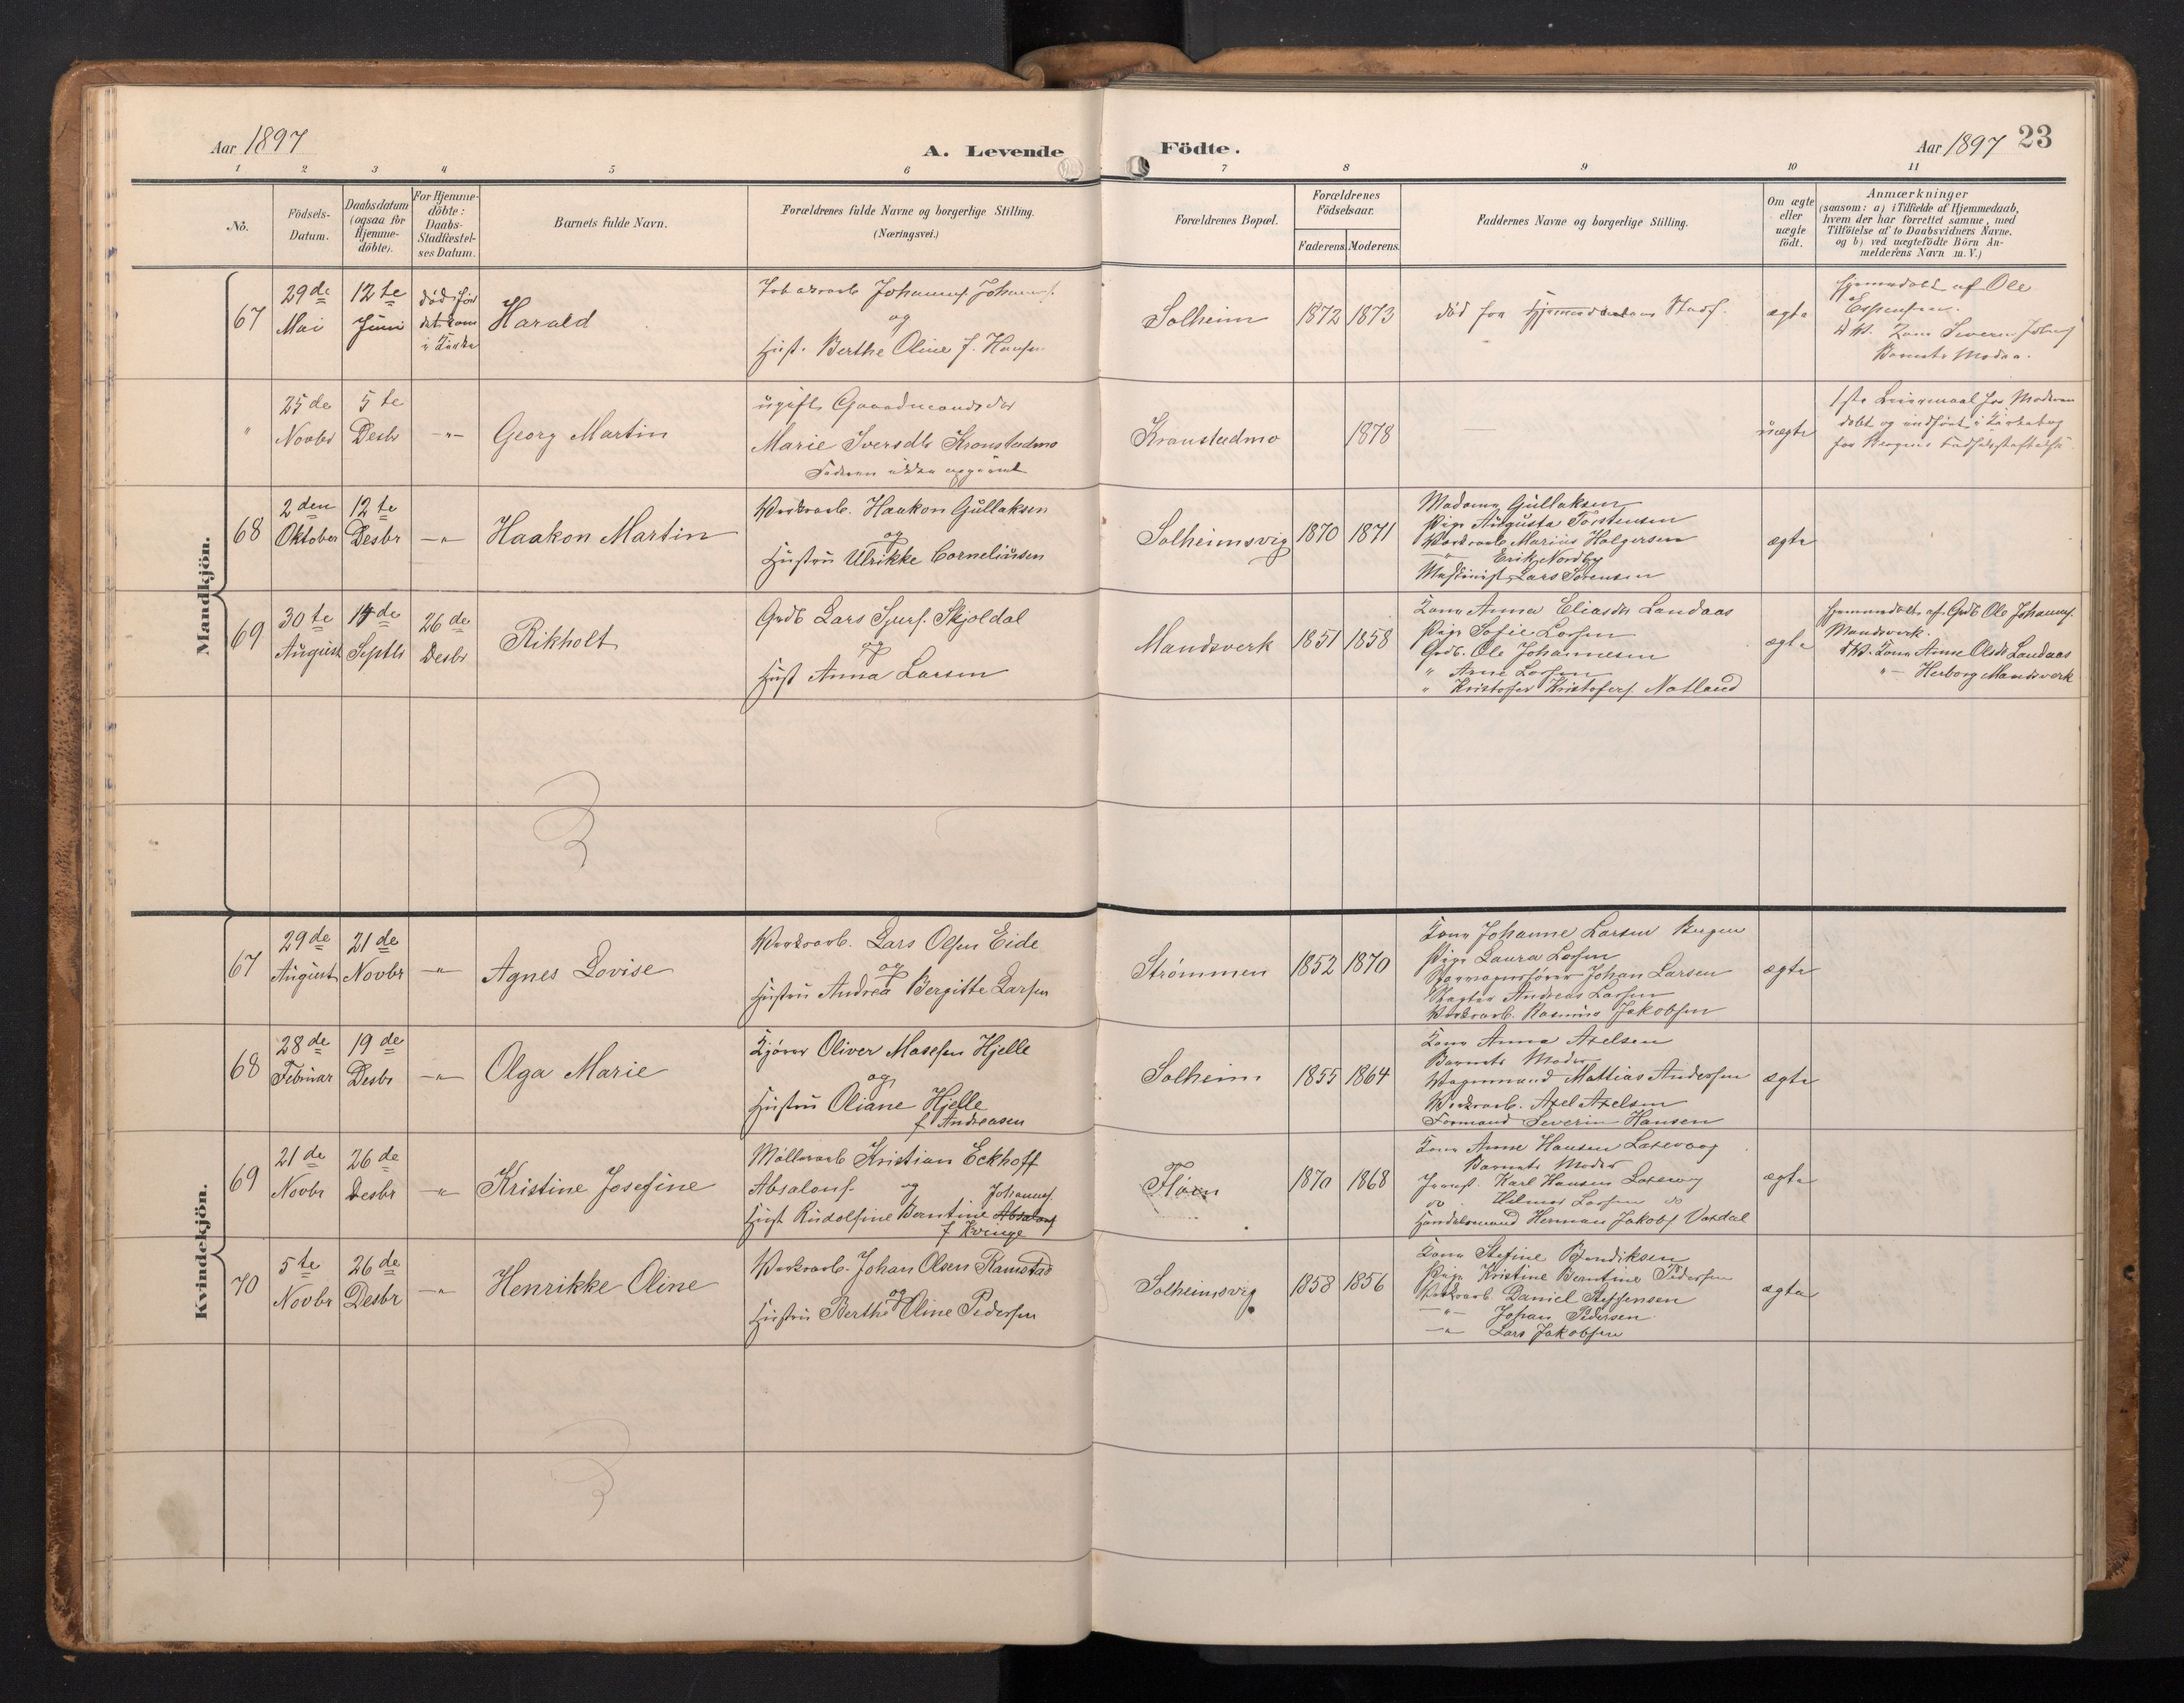 Aar 1897
A. Levende
Födte.
Aar 1897 23
1 2 3 4 5 6 7 8 9 10 11
Nö.
Födsels-
Datum.
Daabsdatum
(ogsaa för
Hjemme-
döbte).
For Hjemme-
döbte:
Daabs-
Stadfæstel-
ses Datum.
Barnets fulde Navn.
Forældrenes fulde Navne og borgerlige Stilling.
(Næringsvei.)
Forældrenes Bopæl.
Forældrenes
Födselsaar.
Faderens. Moderens.
Faddernes Navne og borgerlige Stilling.
Om ægte
eller
uægte
födt.
Anmærkninger
(saasom: a) i Tilfælde af Hjemmedaab,
hvem der har forrettet samme, med
Tilföielse af to Daabsvidners Navne,
og b) ved uægtefödte Börn An-
melderens Navn m. V.)
Mandkjön.
67
29de
Mai
12te
Juni
död før
det kom
i Kirke
Harald
Johannes Johanns.
og
Hust. Berthe Oline f. Hansen
Solheim
1872 1873
död før Stadf.
ægte
Hjemmedöbt af Ole
Espensen.
Barnets Moder.
"
25de
Novbr
5te
Desbr
-"-
Georg Martin
ugift Gaardmandsdtr
Marie Iversdtr Kronstadmo
Faderen ikke opgivet
Kronstadmo
1878
—
uægte
1ste Leiermaal for Moderen
döbt og indført i Kirkebog
for Bergens Födselsstiftelse
68
2den
Oktober
12te
Desbr
-"-
Haakon Martin
Værksarb. Haakon Gullaksen
og
Hustru Ulrikke Corneliusen
Solheimsvig
1870 1871
Madame Gullaksen
Pige Augusta Torstensen
Værksarb. Marius Holgersen
-"- Erik Nordby
Maskinist Lars Sörensen
ægte
69
30te
August
14de
Septbr
26de
Desbr
Rikholt
Grdb Lars Sjurs. Skjoldal
og
Hust Anna Larsen
Mandsverk
1851 1858
Kone Anna Eliasdtr Landaas
Pige Sofie Larsen
Grdb. Ole Johannesen
" Arne Larsen
" Kristofer Kristofers. Natland
ægte
Hjemmedöbt af Grdb Ole Johanns.
Mandsverk.
D.V. Kone Anne Olsdtr Landaas
"- Herborg Mandsverk
Kvindekjön.
67
29de
August
21de
Novbr
-"-
Agnes Lovise
Værksarb. Lars Olsen Eide
og
Hustru Andrea Bergitte Larsen
Strömmen
1852 1870
Kone Johanne Larsen Bergen
Pige Laura Larsen
Johan Larsen
Slagter Andreas Larsen
Værksarb. Rasmus Jakobsen
ægte
68
28de
Februar
19de
Desbr
-"-
Olga Marie
Kjörer Oliver Mosesen Hjelle
og
Hustru Oliane Hjelle
f. Andreasen
Solheim
1855 1864
Kone Anna Axelsen
Barnets Moder
Vognmand Mattias Andersen
Værksarb. Axel Axelsen
Formand Severin Hansen
ægte
69
21de
Novbr
26de
Desbr
-"-
Kristine Josefine
Möllerarb Kristian Eckhoff
Absalons. og Johanns.
Hust Rudolfine Berntine Absalons
f Kvinge
Flöen
1870 1868
Kone Anne Hansen Laxevaag
Barnets Moder
Karl Hansen Laxevaag
do Hilmar Larsen do
Handelsmand Herman Jakobs Vaxdal
ægte
70
5te
Novbr
26de
Desbr
-"-
Henrikke Oline
Værksarb. Johan Olsen Ramstad
og
Hustru Berthe Oline Pedersen
Solheimsvig
1858 1856
Kone Stefine Bendiksen
Pige Kristine Berntine Pedersen
Værksarb. Daniel Steffensen
-"- Johan Pedersen
-"- Lars Jakobsen
ægte